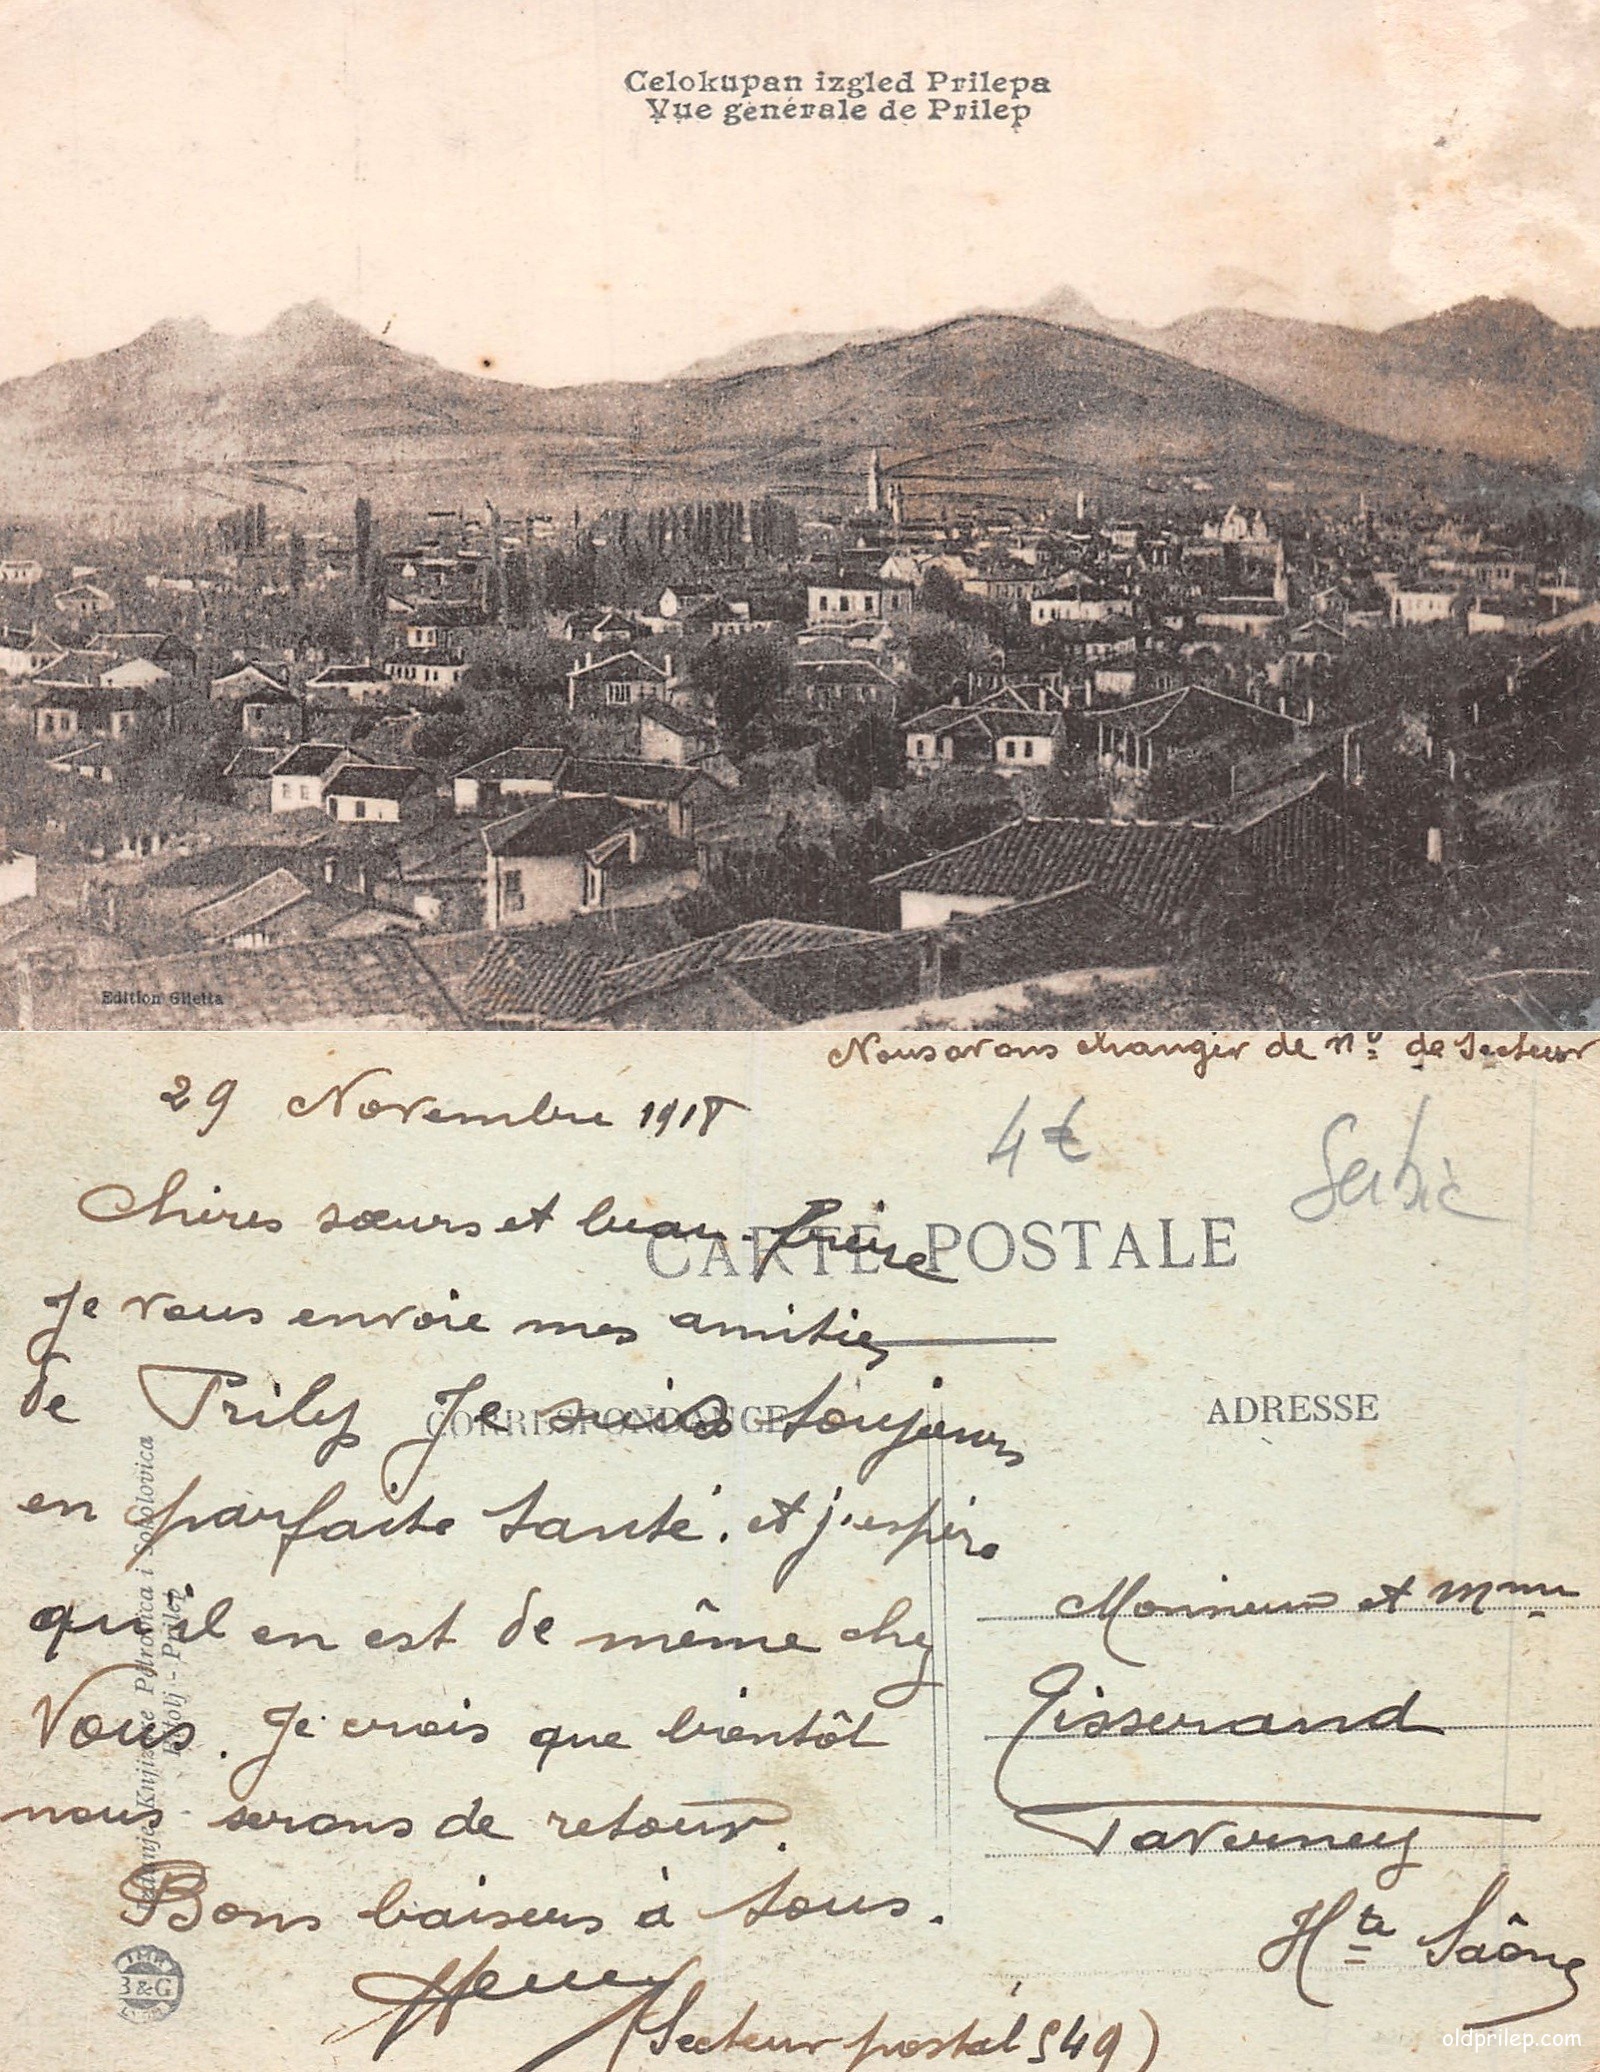 Celokupan izgled Prilepa
Vue générale de Prilep
Edition Giletta
Nous avons changer de nº de Secteur
29 Novembre 1918
4€
Serbie
CARTE POSTALE
Chères sœurs et beau-frère
Je vous envoie mes amitiés
de Prilep Je suis toujours
en parfaite santé. et j'espère
qu'il en est de même chez
Vous. Je crois que bientôt
nous serons de retour.
Bons baisers à tous.
Henri
(Secteur postal 549)
CORRESPONDANCE
ADRESSE
Monsieur et Mme
Tisserand
Taverney
Hte Saône
Izdanje Knjižare Petrovića i Sokolovica
Bitolj - Prilep
B&G
oldprilep.com